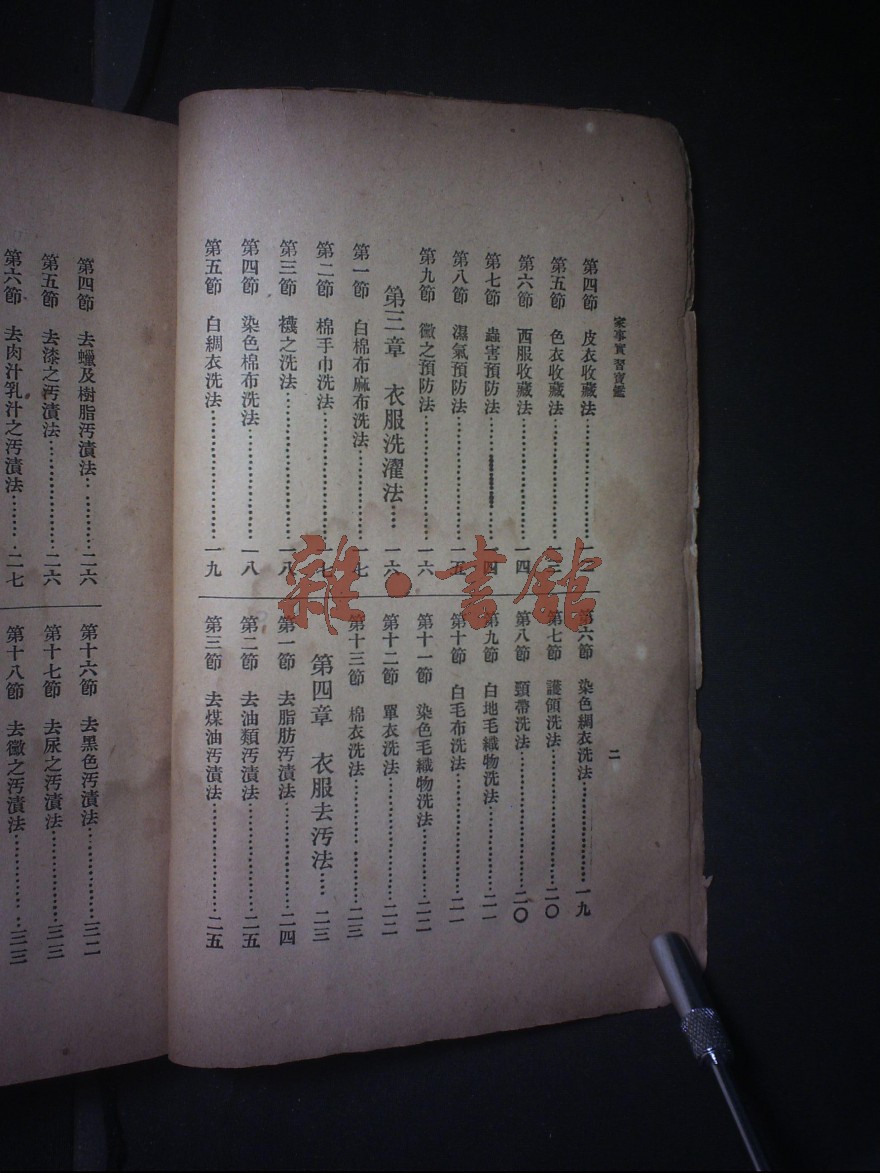 家事實習寶鑑
第四節 皮衣收藏法
第五節 色衣收藏法
第六節 西服收藏法……一四
第七節 蟲害預防法……一四
第八節 濕氣預防法……一五
第九節 黴之預防法……一六
第三章 衣服洗濯法……一六
第一節 白棉布麻布洗法……一七
第二節 棉手巾洗法……一七
第三節 襪之洗法……一八
第四節 染色棉布洗法……一八
第五節 白綢衣洗法……一九
二
第六節 染色綢衣洗法……一九
第七節 護領洗法……二〇
第八節 頸帶洗法……二〇
第九節 白地毛織物洗法……二一
第十節 白毛布洗法……二一
第十一節 染色毛織物洗法……二二
第十二節 單衣洗法……二二
第十三節 棉衣洗法……二三
第四章 衣服去汚法……二三
第一節 去脂肪汚漬法……二四
第二節 去油類汚漬法……二五
第三節 去煤油汚漬法……二五
第四節 去蠟及樹脂汚漬法……二六
第五節 去漆之汚漬法……二六
第六節 去肉汁乳汁之汚漬法……二七
第十六節 去黑色汚漬法……三二
第十七節 去尿之汚漬法……三三
第十八節 去黴之汚漬法……三三
雜·書館